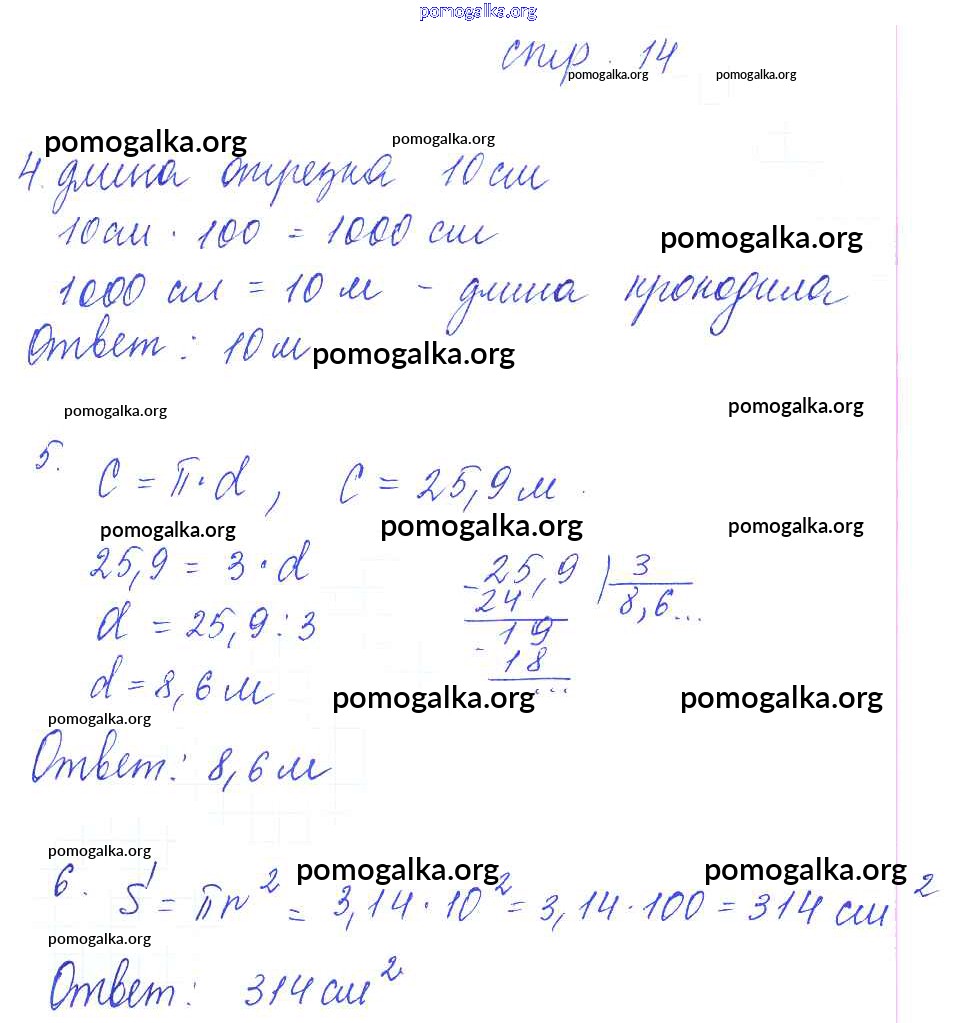 pomogalka.org
стр. 14
pomogalka.org pomogalka.org
pomogalka.org pomogalka.org
4. длина отрезка 10 см
10 см · 100 = 1000 см
pomogalka.org
1000 см = 10 м - длина крокодила
Ответ: 10 м
pomogalka.org
pomogalka.org pomogalka.org
5. C = π · d, C = 25,9 м.
pomogalka.org pomogalka.org pomogalka.org
25,9 = 3 · d
- 25,9 | 3
24 8,6...
d = 25,9 : 3
- 19
18
...
d = 8,6 м
pomogalka.org pomogalka.org
pomogalka.org
Ответ: 8,6 м
pomogalka.org
pomogalka.org pomogalka.org
6. S = πr² = 3,14 · 10² = 3,14 · 100 = 314 см²
pomogalka.org
Ответ: 314 см²